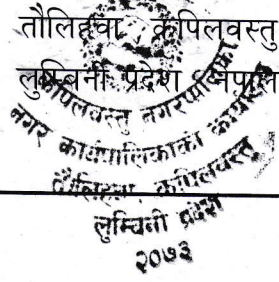 तौलिहवा, कपिलवस्तु
लुम्बिनी प्रदेश, नेपाल
कपिलवस्तु नगरपालिका
नगर कार्यपालिकाको कार्यालय
तौलिहवा, कपिलवस्तु
लुम्बिनी प्रदेश
२०७३